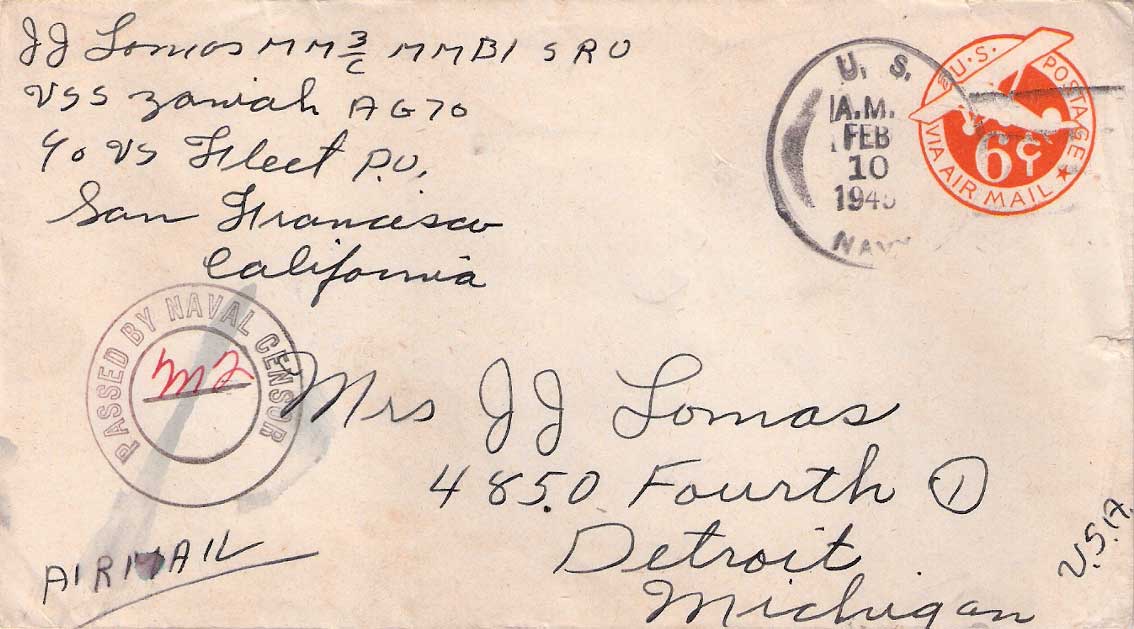 JJ Lomas MM 3/c MMBI SRU
USS Zaniah AG70
c/o US Fleet P.O.
San Francisco
California
U. S.
A.M.
FEB
10
NAVY
U.S. POSTAGE
VIA AIR MAIL
6¢
PASSED BY NAVAL CENSOR
Mrs JJ Lomas
4850 Fourth (1)
Detroit
Michigan
U.S.A.
AIRMAIL